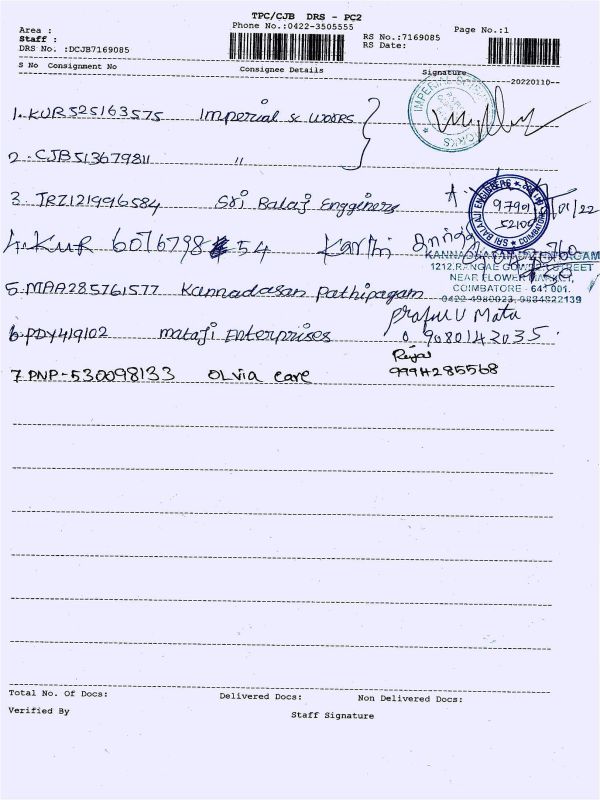 TPC/CJB DRS - PC2
Area :
Phone No.:0422-3505555
Page No.:1
Staff :
RS No.:7169085
DRS No. :DCJB7169085
RS Date:
S No Consignment No Consignee Details Signature
20220110--
1. KUR525163575 Imperial sc works
2. CJB513679811 "
3. TRZ121996584 Sri Balaji Engginers
SRI BALAJI ENGINEERS
COIMBATORE
4. KUR 6076798 54 Karthi
KANNADHASAN PATHIPPAGAM
1212,RANGAE GOWDER STREET
NEAR FLOWER MARKET,
COIMBATORE - 641 001.
0422-4980023, 9884822139
5. MAA285761577 Kannadasan Pathipagam
Praful V Mata
6. PDY419102 mataji Enterprises 9080142035.
7. PNP-530098133 OLVia care 9994285568
Total No. Of Docs: Delivered Docs: Non Delivered Docs:
Verified By Staff Signature